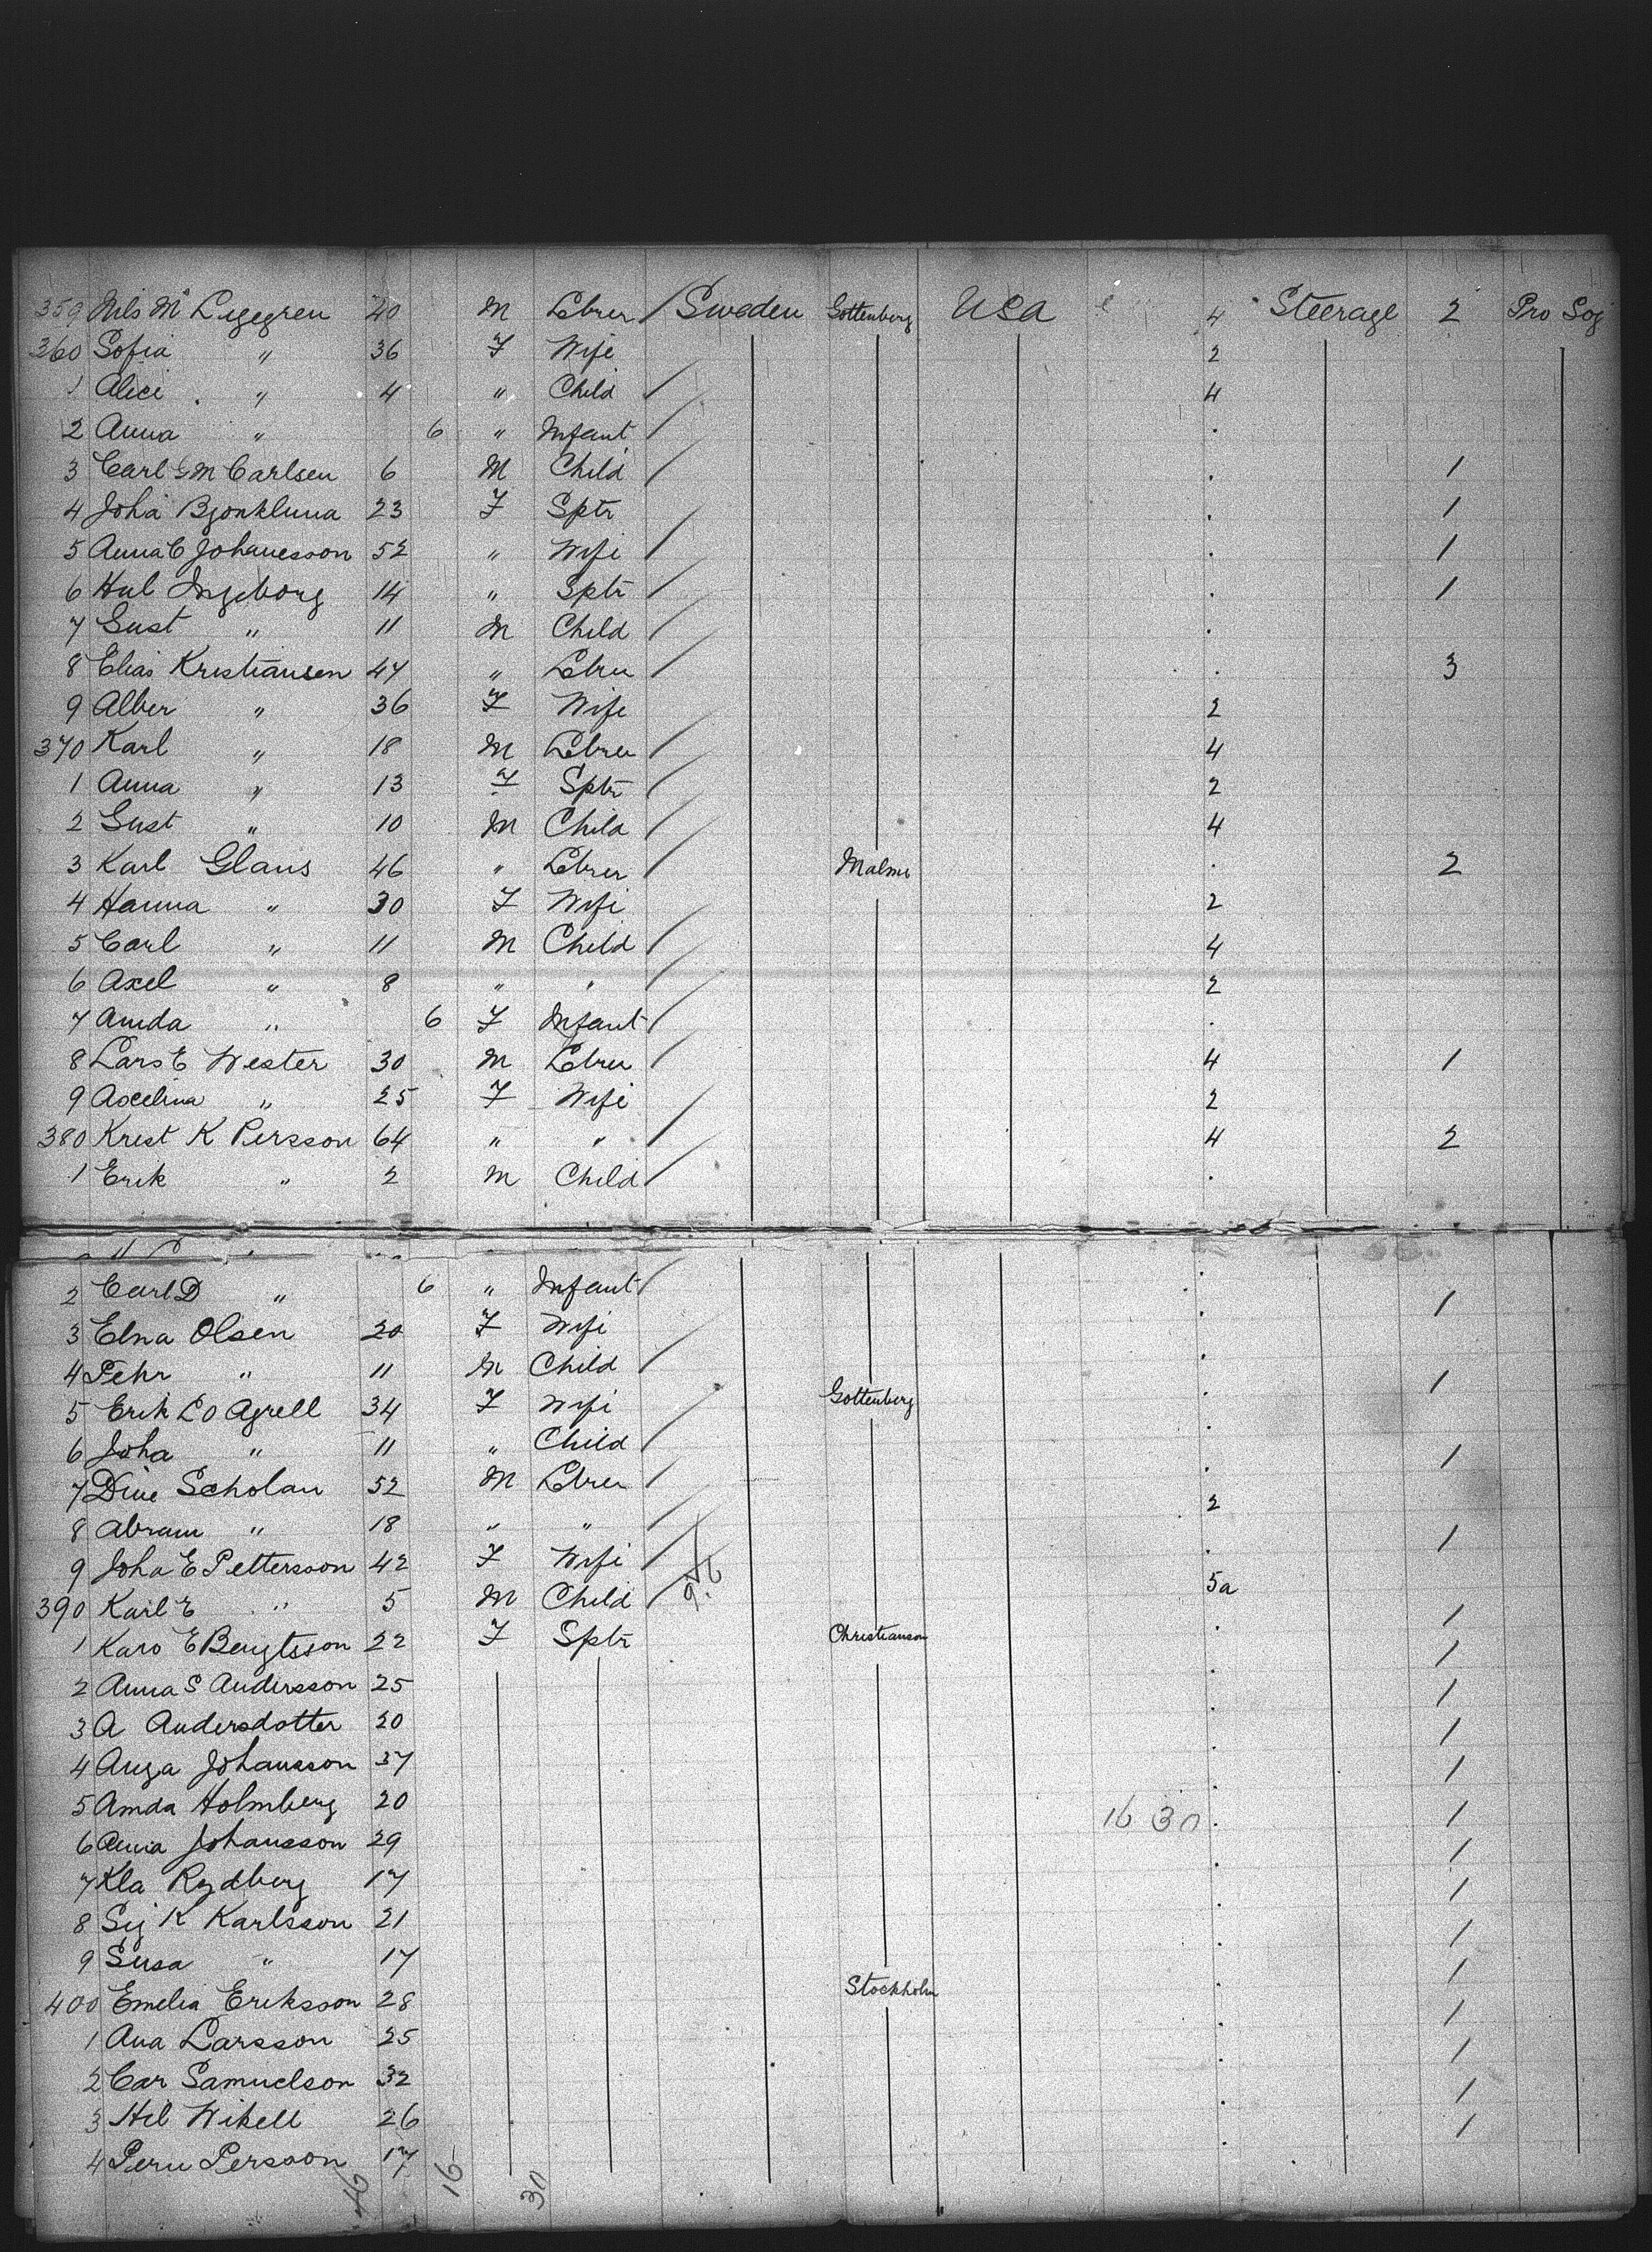 359 Nils M Ligegren 40 M Lebrer Sweden Gottenberg USA 4 Steerage 2 Pro Soj
360 Sofia " 36 F Wife 2
1 Alici " 4 " Child 4
2 Anna " 6 " Infant .
3 Carl G M Carlsen 6 M Child . 1
4 Joha Bjonkluna 23 F Sptr . 1
5 Anna C Johanesson 52 " Wife . 1
6 Hul Ingeborg 14 " Sptr . 1
7 Gust " 11 M Child .
8 Elias Kristiansen 47 " Lebrer . 3
9 Alber " 36 F Wife 2
370 Karl " 18 M Lebrer 4
1 Anna " 13 F Sptr 2
2 Gust " 10 M Child 4
3 Karl Glans 46 " Lebrer Malmo . 2
4 Hanna " 30 F Wife 2
5 Carl " 11 M Child 4
6 Axel " 8 " " 2
7 Amda " 6 F Infant .
8 Lars E Wester 30 M Lebrer 4 1
9 Axelina " 25 F Wife 2
380 Krist K Persson 64 " " 4 2
1 Erik " 2 M Child .
2 Carl D " 6 " Infant .
3 Elna Olsen 20 F Wife . 1
4 Pehr " 11 M Child .
5 Erik L O Agrell 34 F Wife Gottenberg . 1
6 Joha " 11 " Child .
7 Dine Scholan 52 M Lebrer . 1
8 Abram " 18 " " 2
9 Joha E Pettersson 42 F Wife . 1
390 Karl E " 5 M Child 5a
1 Karo E Bengtsson 22 F Sptr Christianson . 1
2 Anna S Andersson 25 . 1
3 A Andersdotter 20 . 1
4 Auga Johansson 37 . 1
5 Amda Holmberg 20 . 1
16 30
6 Anna Johansson 29 . 1
7 Kla Rydberg 17 . 1
8 Sig K Karlsson 21 . 1
9 Susa " 17 . 1
400 Emelia Eriksson 28 Stockholm . 1
1 Ana Larsson 25 . 1
2 Car Samuelson 32 . 1
3 Hil Wikell 26 . 1
4 Peru Persson 17 . 1
46 16 30